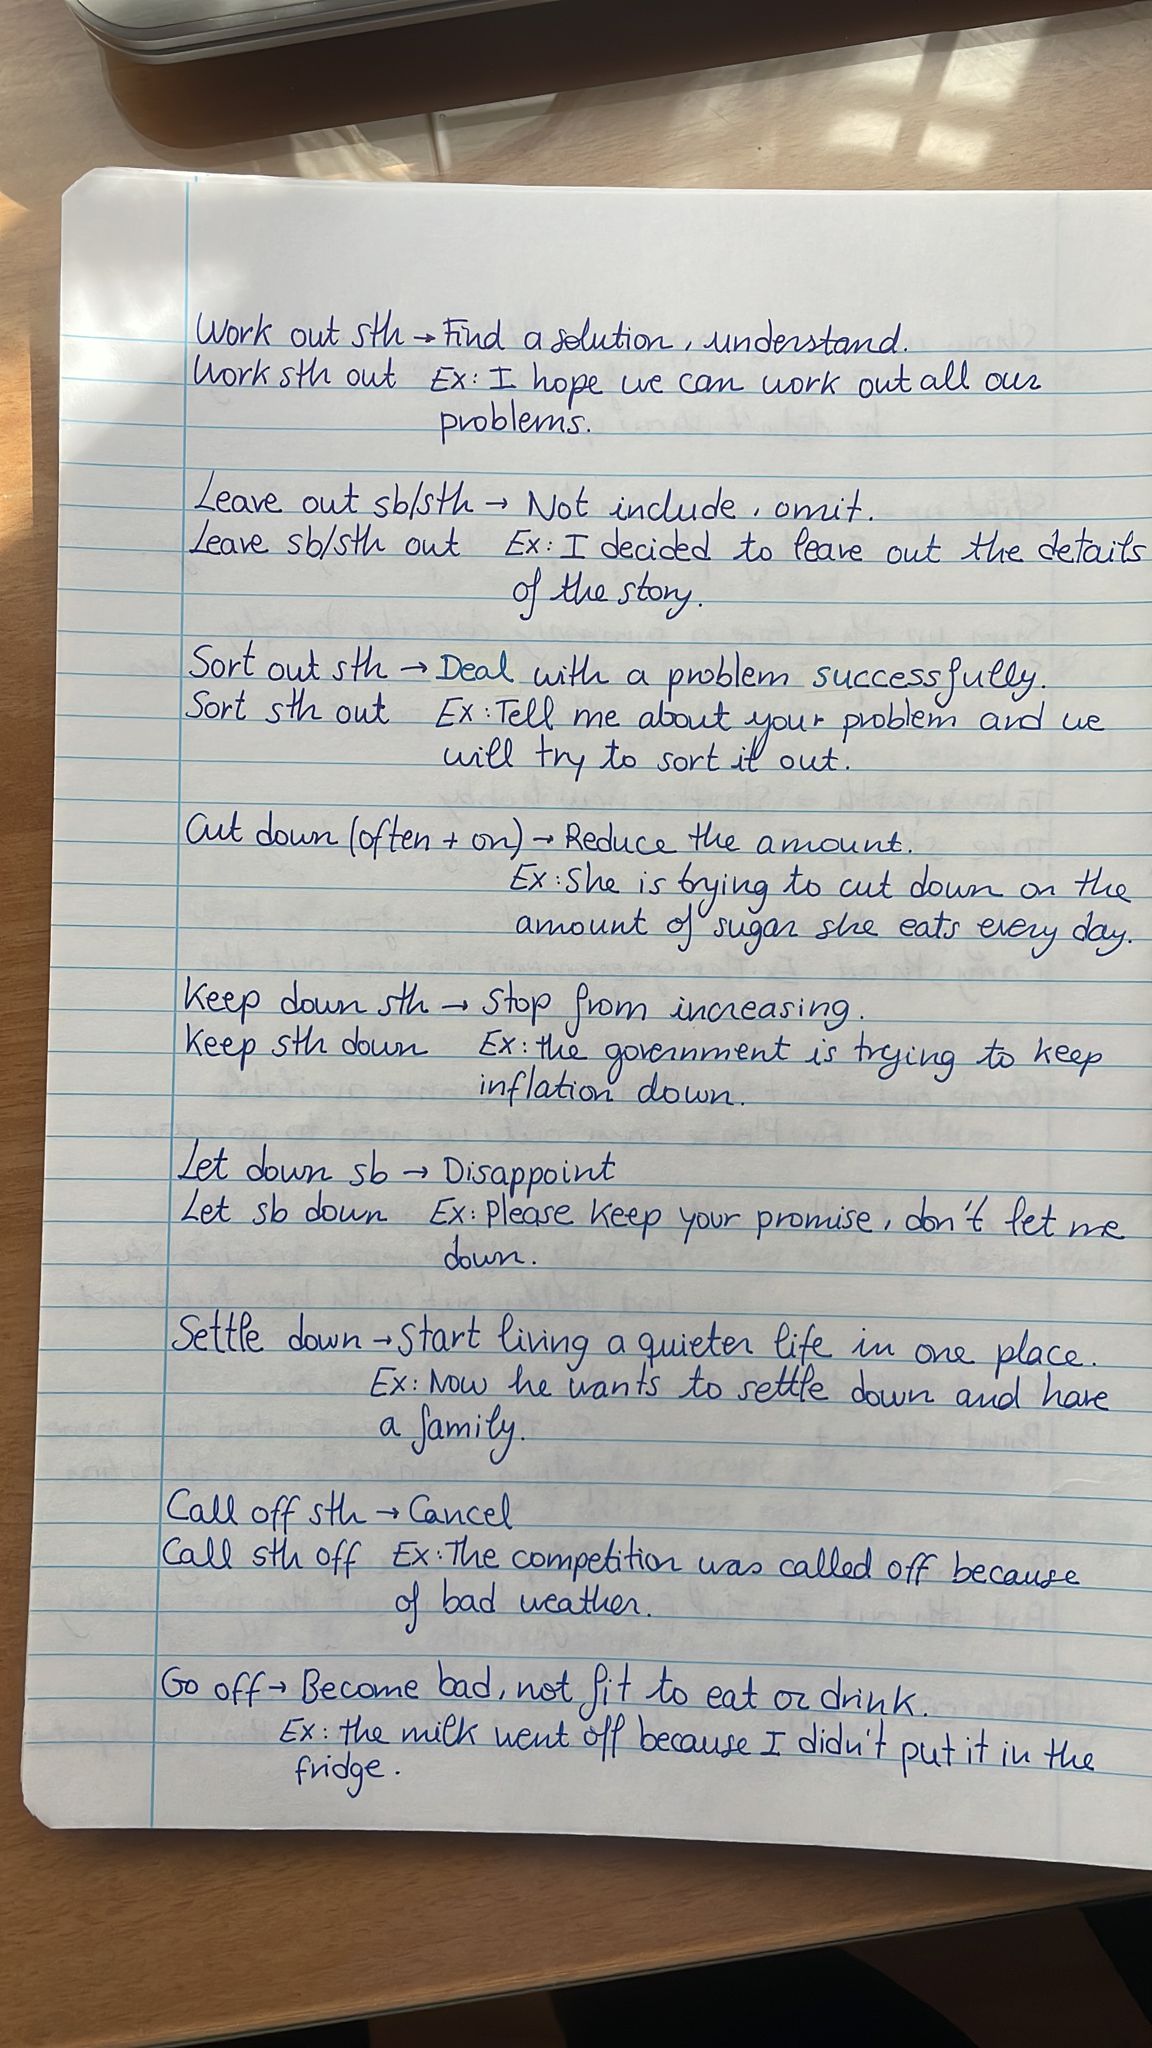 Work out sth → Find a solution, understand.
Work sth out Ex: I hope we can work out all our
problems.
Leave out sb/sth → Not include, omit.
Leave sb/sth out Ex: I decided to leave out the details
of the story.
Sort out sth → Deal with a problem successfully.
Sort sth out Ex: Tell me about your problem and we
will try to sort it out.
Cut down (often + on) → Reduce the amount.
Ex: She is trying to cut down on the
amount of sugar she eats every day.
Keep down sth → Stop from increasing.
Keep sth down Ex: the government is trying to keep
inflation down.
Let down sb → Disappoint
Let sb down Ex: Please keep your promise, don't let me
down.
Settle down → Start living a quieter life in one place.
Ex: Now he wants to settle down and have
a family.
Call off sth → Cancel
Call sth off Ex: The competition was called off because
of bad weather.
Go off → Become bad, not fit to eat or drink.
Ex: the milk went off because I didn't put it in the
fridge.